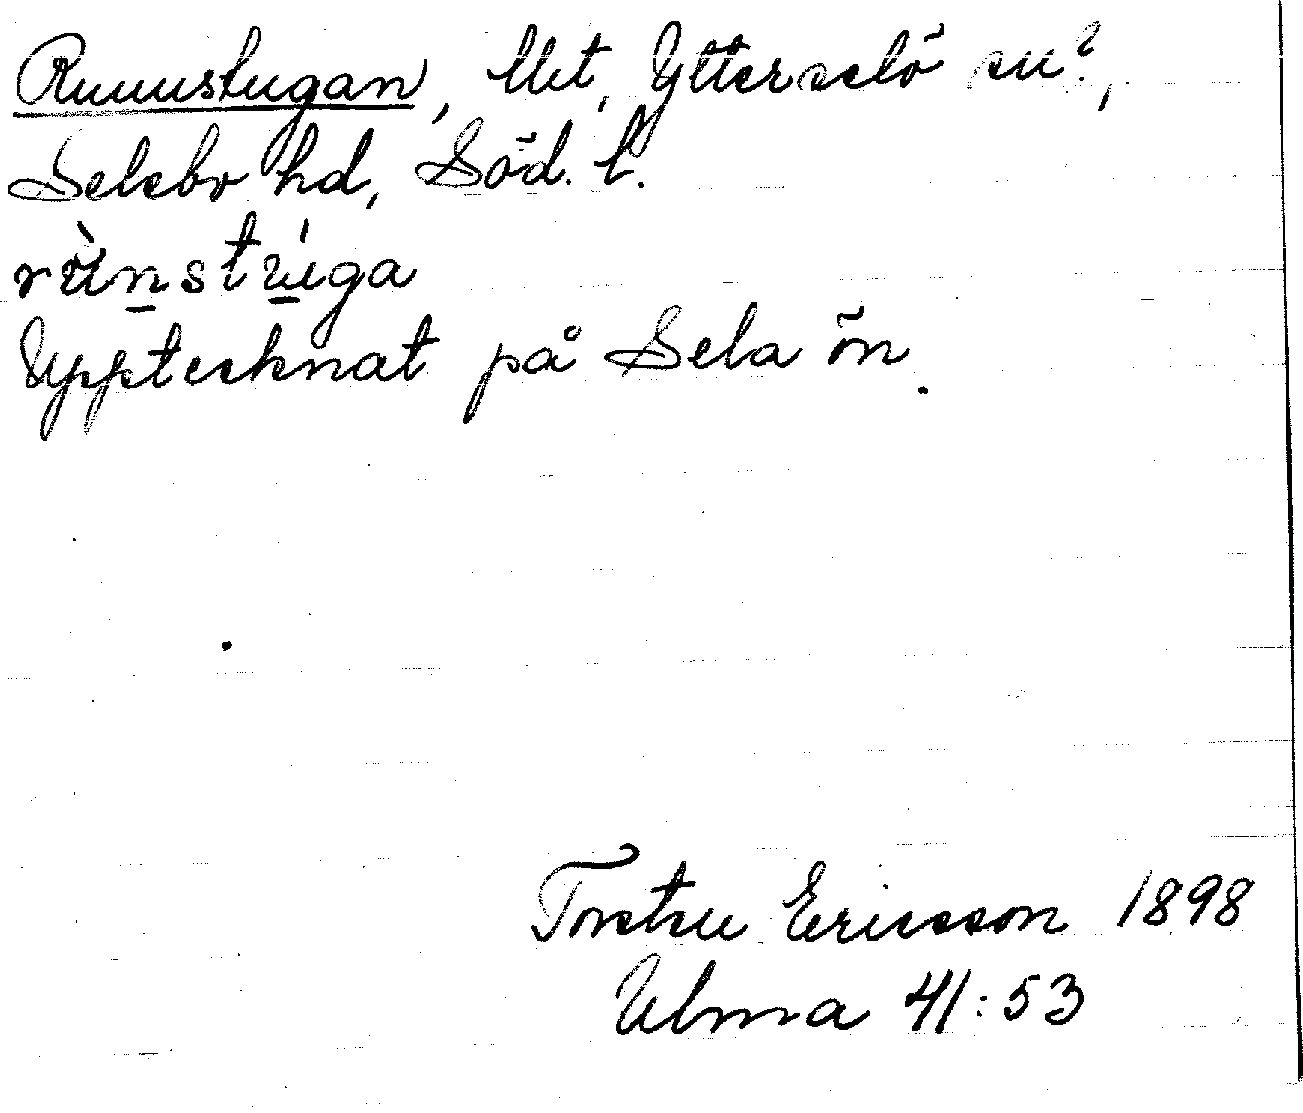 Runnstugan, lht, Ytterselö sn?,
Selebo hd, Söd. l.
rùnstúga
Upptecknat på Sela ön.
Torsten Ericsson 1898
Ulma 41:53